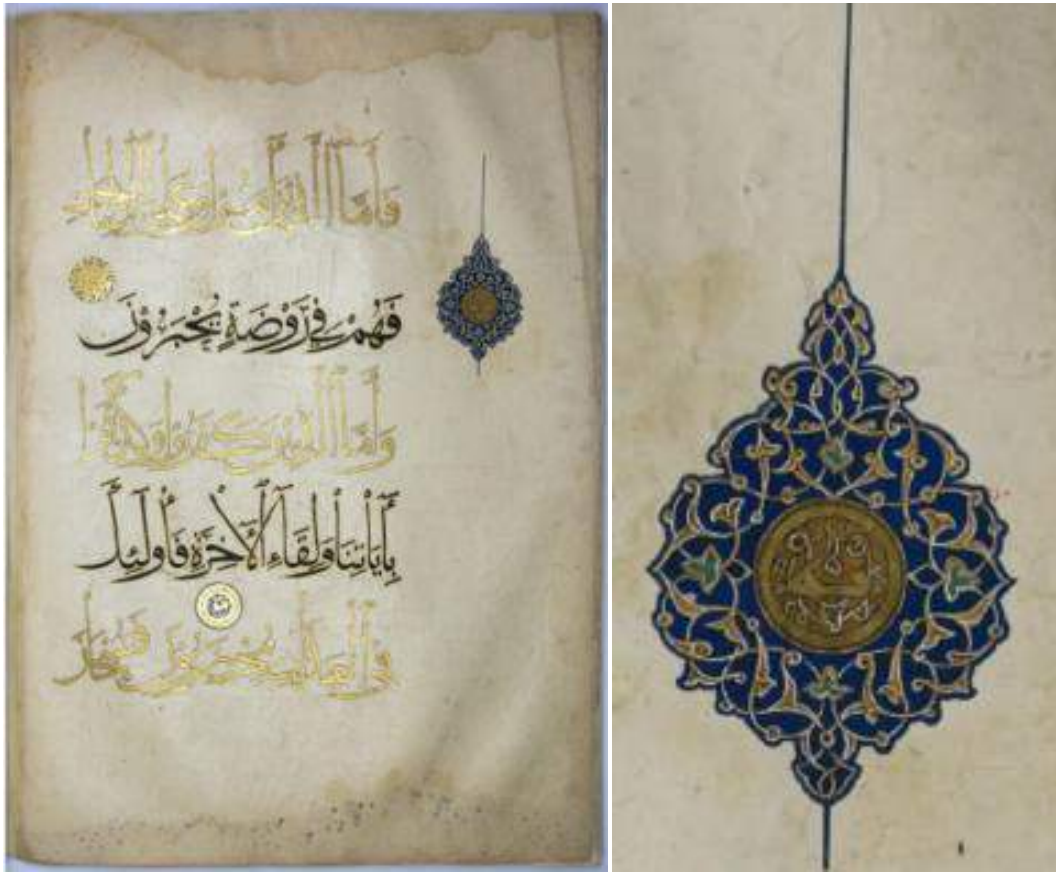 فَأَمَّا الَّذِينَ آمَنُوا وَعَمِلُوا الصَّالِحَاتِ
فَهُمْ فِي رَوْضَةٍ يُحْبَرُونَ
وَأَمَّا الَّذِينَ كَفَرُوا وَكَذَّبُوا
بِآيَاتِنَا وَلِقَاءِ الْآخِرَةِ فَأُولَئِكَ
فِي الْعَذَابِ مُحْضَرُونَ فَسُبْحَانَ